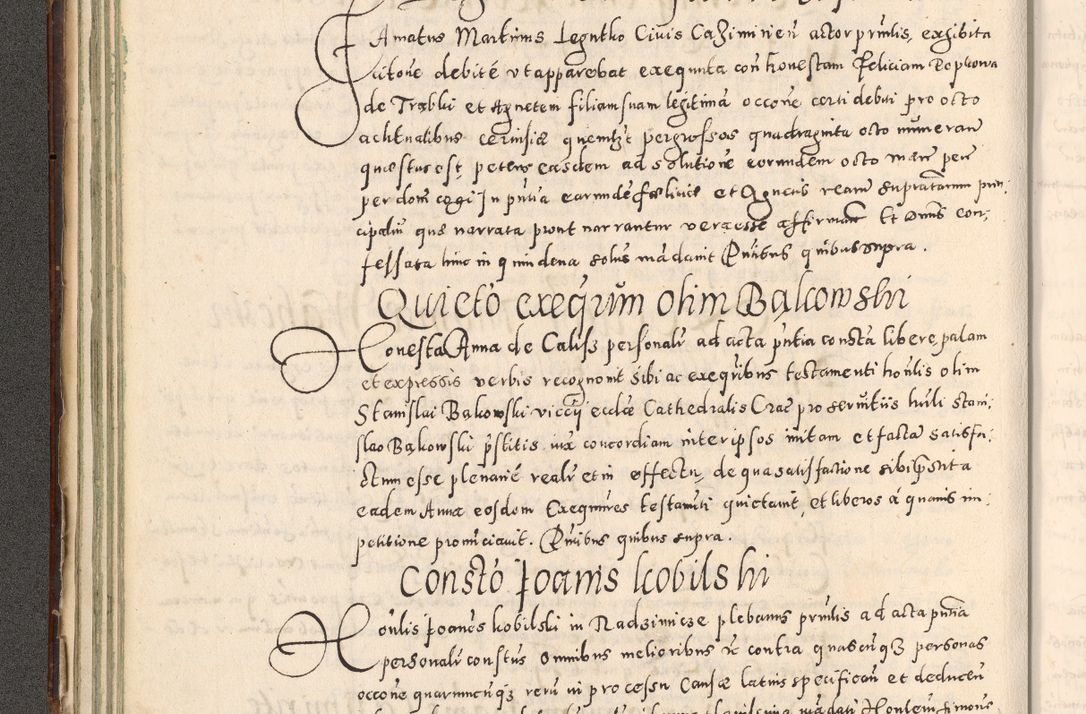 Amatus Martinus Legutko Civis Cazimirien actor prnlis, exhibita
citone debite ut apparebat exequuta con honestam Feliciam
de et Agnetem filiam suam legitima occone certi debiti pro octo
achtualibus cervisiæ quemlz pergrossos quadraginta octo numeran
questus est, petens easdem ad solutione eorundem octo marc pecu
per dom cogi In pntia earunde feliciæ et Agnetis rearu supratarum prin:
cipaliu que narrata prout narrantur vera esse affirmant Et Dnus con:
fessata hinc in quindena solus madavit Pntibus quibus supra.
Quieto exequrum olim Bąkowski
Honesta Anna de Calisz personalr ad acta pntia consta libere, palam
et expressis verbis recognovit sibi ac exequribus testamenti honlis olim
Stanislai Bąkowski viccy ecclæ Cathedralis Crac pro servitiis huili Stani:
slao Bąkowski pstitis iux concordiam inter ipsos initam et facta satisfa:
ctum esse plenarie realr et in effectu, de qua satisfactione sibi pstita
eadem Anna eosdem Exequures testamti quietavit, et liberos a quavis im:
petitione pronuciavit. Pntibus quibus supra.
Consto Joanis kobilski
Honlis Joanes kobilski in Radzimicze plebanus prnlis ad acta pntia
personalr constus omnibus melioribus rc contra quascuqz personas
occone quarumcuqz reru in processu Causæ latius specifican et deducen